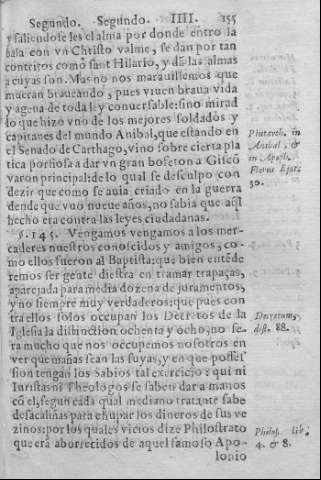 Segundo. Segundo. IIII. 155
y saliendoseles el alma por donde entro la
bala con vn Christo valme, se dan por tan
contritos como sant Hilario, y dā las almas
a cuyas son. Mas no nos marauillemos que
mueran braueando, pues viuen braua vida
y agena de toda ley conuersable: sino mirad
lo que hizo vno de los mejores soldados y
capitanes del mundo Anibal, que estando en
el Senado de Carthago, vino sobre cierta pla
tica porfiosa a dar vn gran bofeton a Giscō
varon principal: de lo qual se desculpo con
dezir que como se auia criado en la guerra
dende que vuo nueue años, no sabia que aql
hecho era contra las leyes ciudadanas.
Plutarch. in
Anibal. &
in Apoph.
30.
§. 145. Vengamos vengamos a los mer-
caderes nuestros conoscidos y amigos, co-
mo ellos fueron al Baptista: que bien entēde
remos ser gente diestra en tramar trapaças,
aparejada para media dozena de juramentos,
y no siempre muy verdaderos: que pues con
tra ellos solos occupan los Decretos de la
Iglesia la distinction ochenta y ocho, no se-
ra mucho que nos occupemos nosotros en
ver que mañas sean las suyas, y en que posses
sion tengan los Sabios tal exercicio: qui ni
Iuristas ni Theologos se saben dar a manos
cō el, segun cada qual mediano tratante sabe
desacaliñas para chupar los dineros de sus ve
zinos: por los quales vicios dize Philostrato
que era aborrecidos de aquel famoso Apo-
lonio
Decretum,
dist. 88.
Philos. lib.
4. & 8.